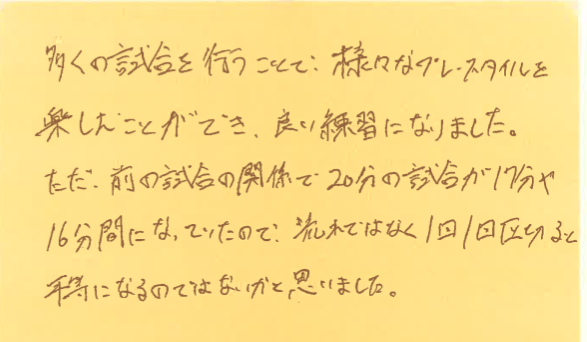 多くの試合を行うことで、様々なプレースタイルを
楽しむことができ、良い練習になりました。
ただ、前の試合の関係で20分の試合が17分や
16分間になっていたので、流れではなく1回1回区切ると
平等になるのではないかと思いました。